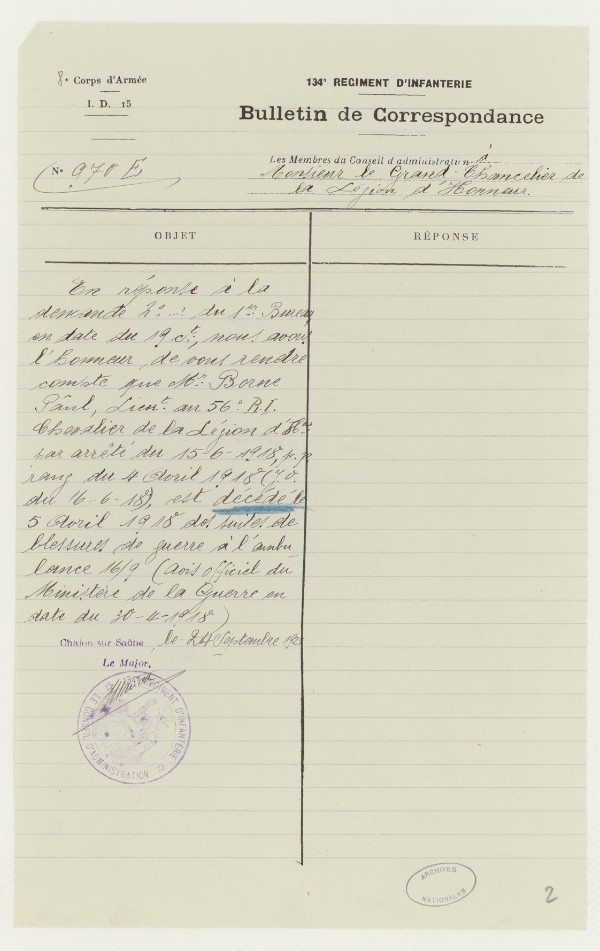 8e Corps d'Armée
I. D. 15
134e REGIMENT D'INFANTERIE
Bulletin de Correspondance
No 970 E
Les Membres du Conseil d'administration à
Monsieur le Grand Chancelier de
la Légion d'Honneur.
OBJET
RÉPONSE
En réponse à la
demande 2o du 1er Bureau
en date du 19 ct, nous avons
l'honneur de vous rendre
compte que Mr. Borne
Paul, Lieut. au 56e R.I.
Chevalier de la Légion d'Hr
par arrêté du 15-6-1918, p.
rang du 4 Avril 1918 (J.O.
du 16-6-18), est décédé le
5 Avril 1918 des suites de
blessures de guerre à l'ambu
lance 16/9 (Avis officiel du
Ministère de la Guerre en
date du 30-4-1918)
Chalon-sur-Saône, le 24 Septembre
Le Major,
134e REGIMENT D'INFANTERIE
LE CONSEIL D'ADMINISTRATION
ARCHIVES
NATIONALES
2